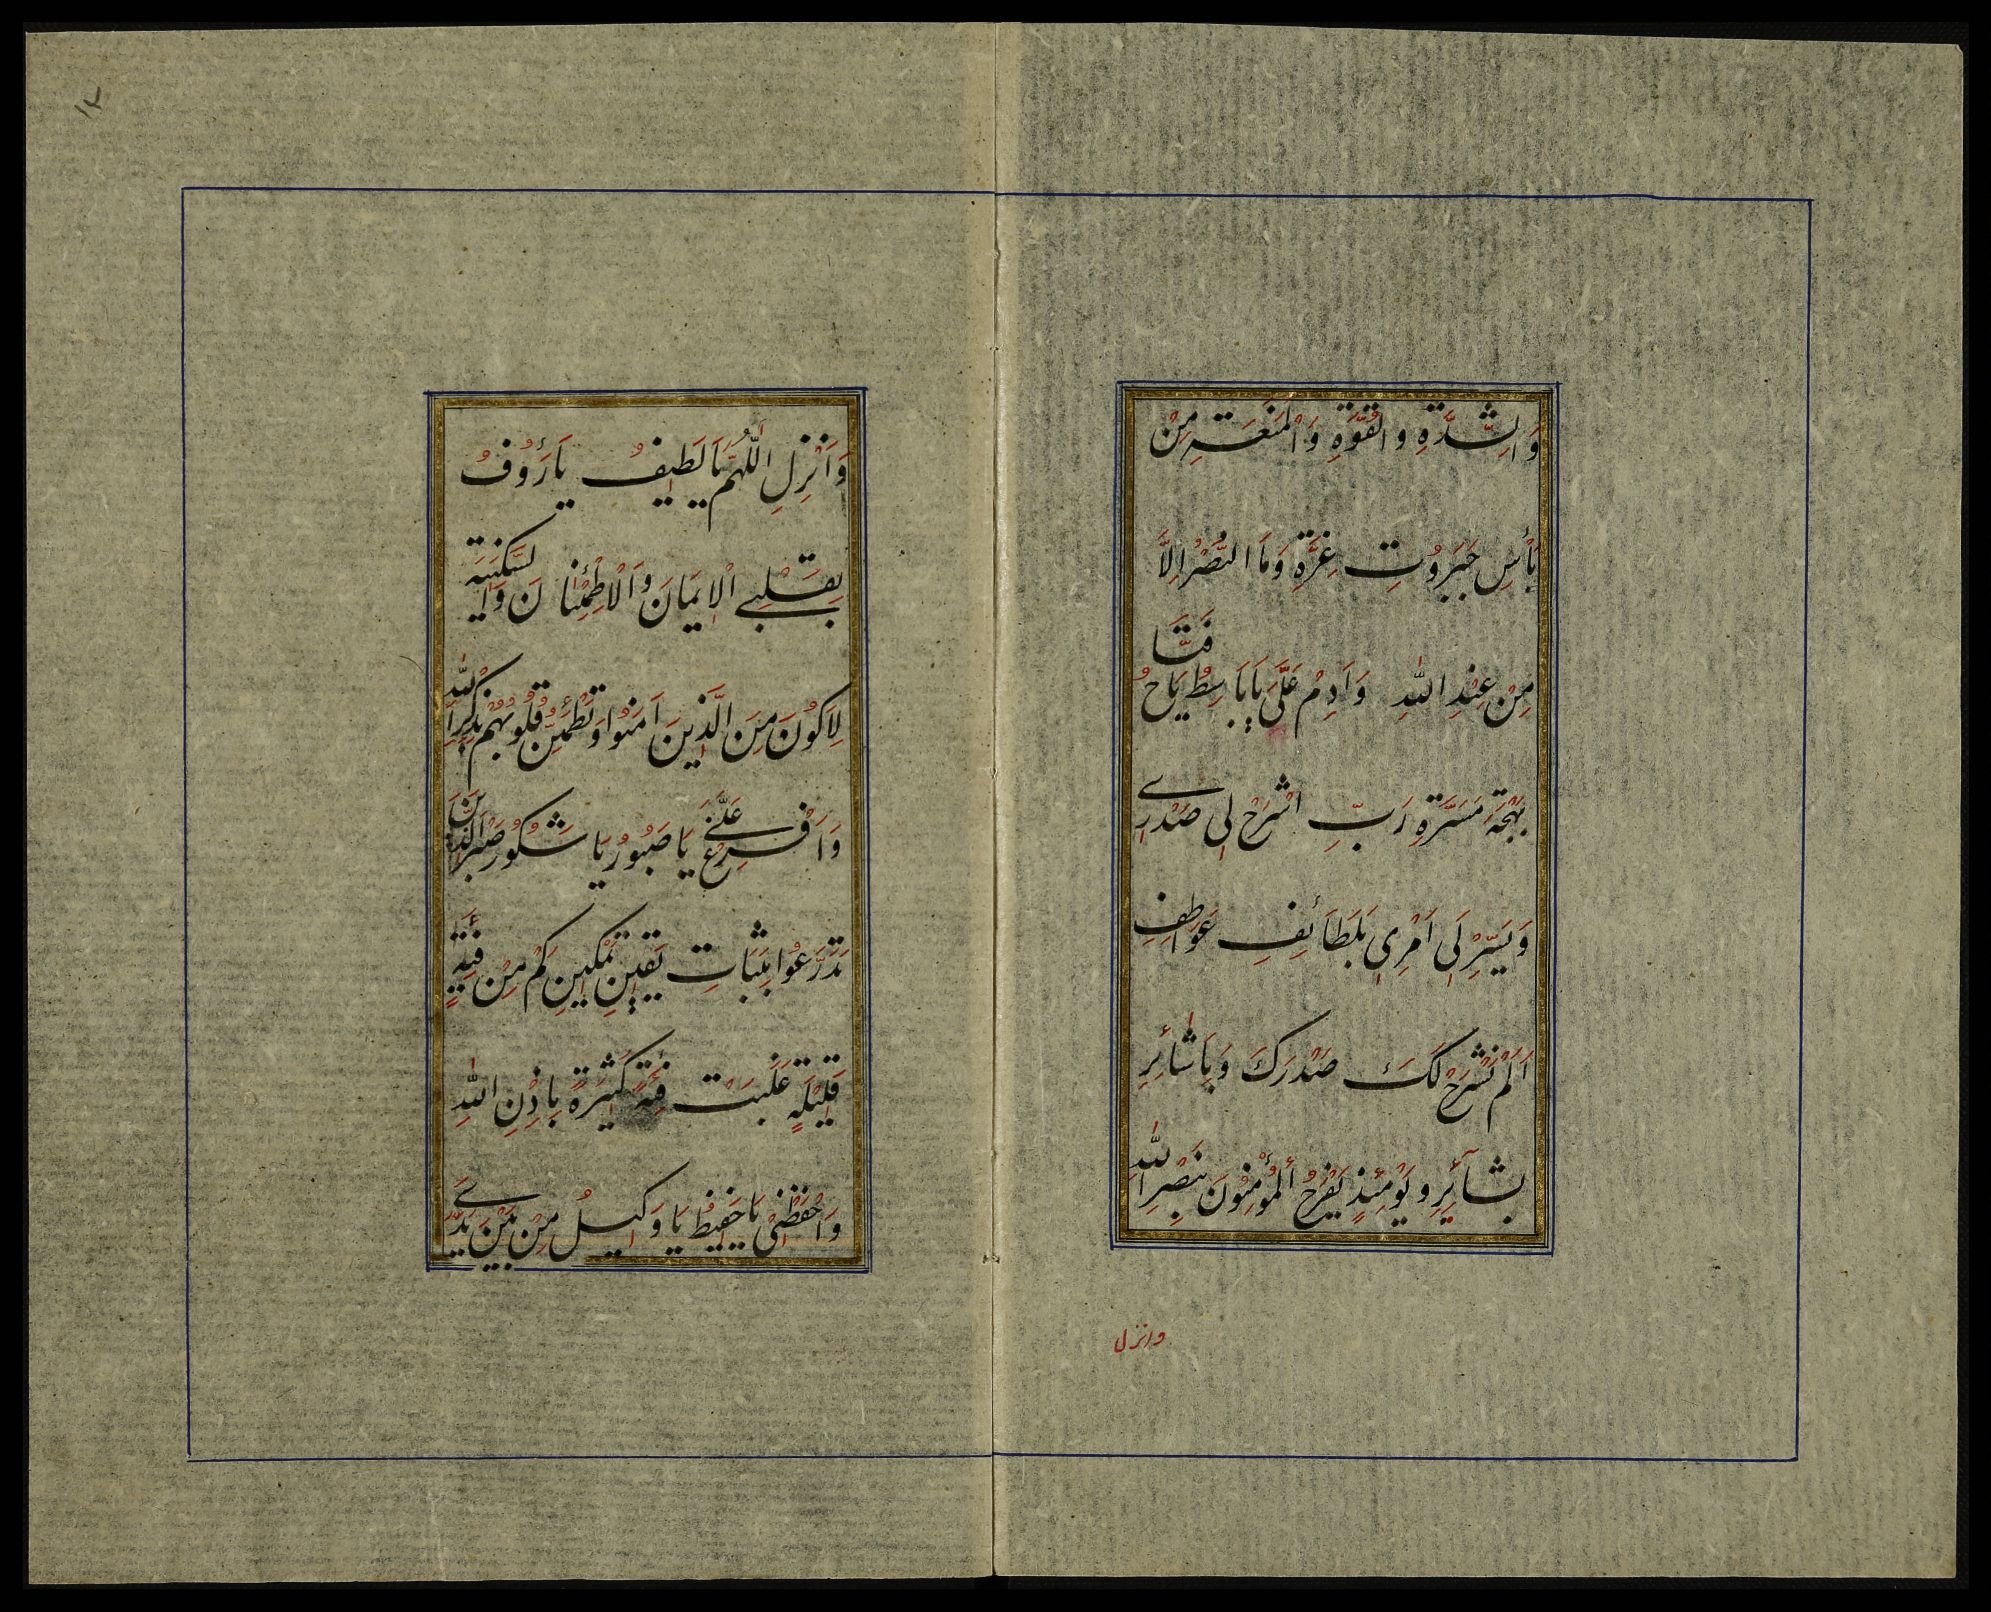 وَالشِّدَّةِ وَالقُوَّةِ وَالْمَنَعَةِ مِنْ
بَأْسِ جَبَرُوتِ عِزَّةِ وَمَا النَّصْرُ اِلَّا
مِنْ عِنْدِ اللهِ وَاَدِمْ عَلَيَّ يَا بَاسِطُ يَا فَتَّاحُ
بَهْجَةَ مَسَرَّةِ رَبِّ اشْرَحْ لِي صَدْرِي
وَيَسِّرْ لِي اَمْرِي بَلَطَائِفِ عَوَاطِفِ
اَلَمْ نَشْرَحْ لَكَ صَدْرَكَ وَبِاَشَائِرِ
بَشَآئِرِ وَيَوْمَئِذٍ يَفْرَحُ الْمُؤْمِنُونَ بِنَصْرِ اللهِ
وانزل
١٢
وَاَنْزِلِ اللّٰهُمَّ يَا لَطِيفُ يَا رَؤُوفُ
بِقَلْبِي الْاِيمَانَ وَالْاِطْمِئْنَانَ وَالسَّكِينَةَ
لِاَكُونَ مِنَ الَّذِينَ اَمَنُوا وَتَطْمَئِنُّ قُلُوبُهُمْ بِذِكْرِ اللهِ
وَاَفْرِغْ عَلَيَّ يَا صَبُورُ يَا شَكُورُ صَبْرَ الَّذِينَ
تَدَرَّعُوا بِثَبَاتِ يَقِينِ تَمْكِينِ كَمْ مِنْ فِئَةٍ
قَلِيلَةٍ غَلَبَتْ فِئَةً كَثِيرَةً بِاِذْنِ اللهِ
وَاحْفَظْنِي يَا حَفِيظُ يَا وَكِيلُ مِنْ بَيْنِ يَدَيَّ